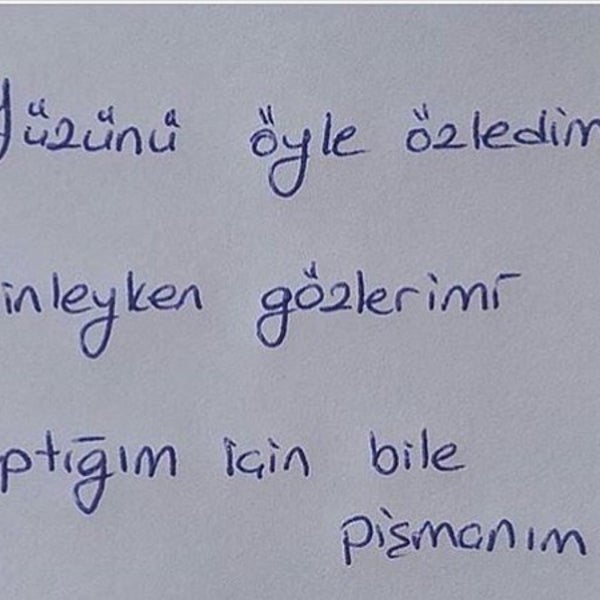 Yüzünü öyle özledim
inleyken gözlerimi
ptığım için bile
pişmanım